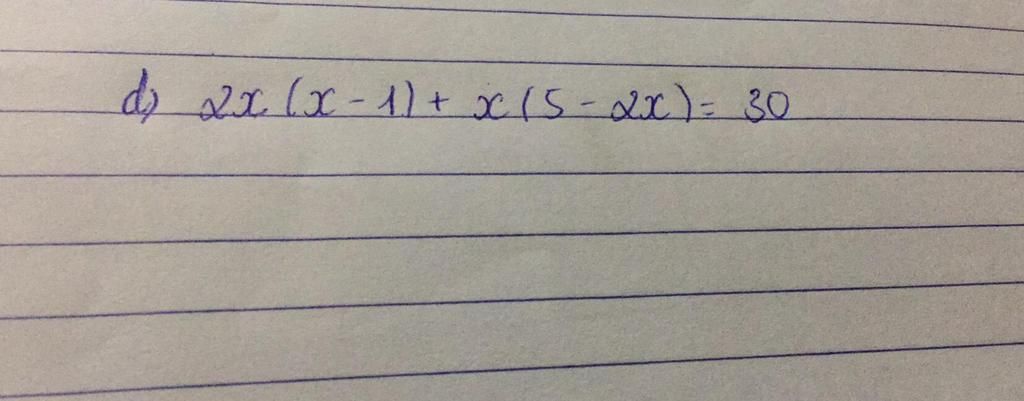 d) 2x (x - 1) + x (5 - 2x) = 30